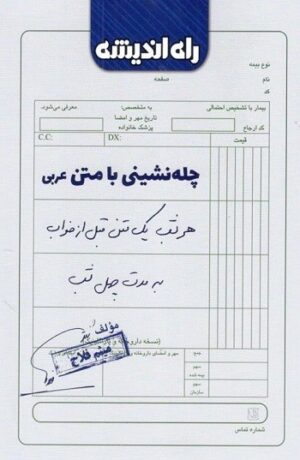 راه اندیشه
نوع بیمه
نام
صفحه
کد
بیمار با تشخیص احتمالی
به متخصص:
معرفی می‌شود.
تاریخ مهر و امضا
کد ارجاع
پزشک خانواده
C.C:
DX:
قیمت
چله‌نشینی با متن عربی
هر شب یک متن قبل از خواب
به مدت چهل شب
مؤلف
میثم فلاح
جمع
سهم
بیمه شده
سهم
سازمان
شماره تماس